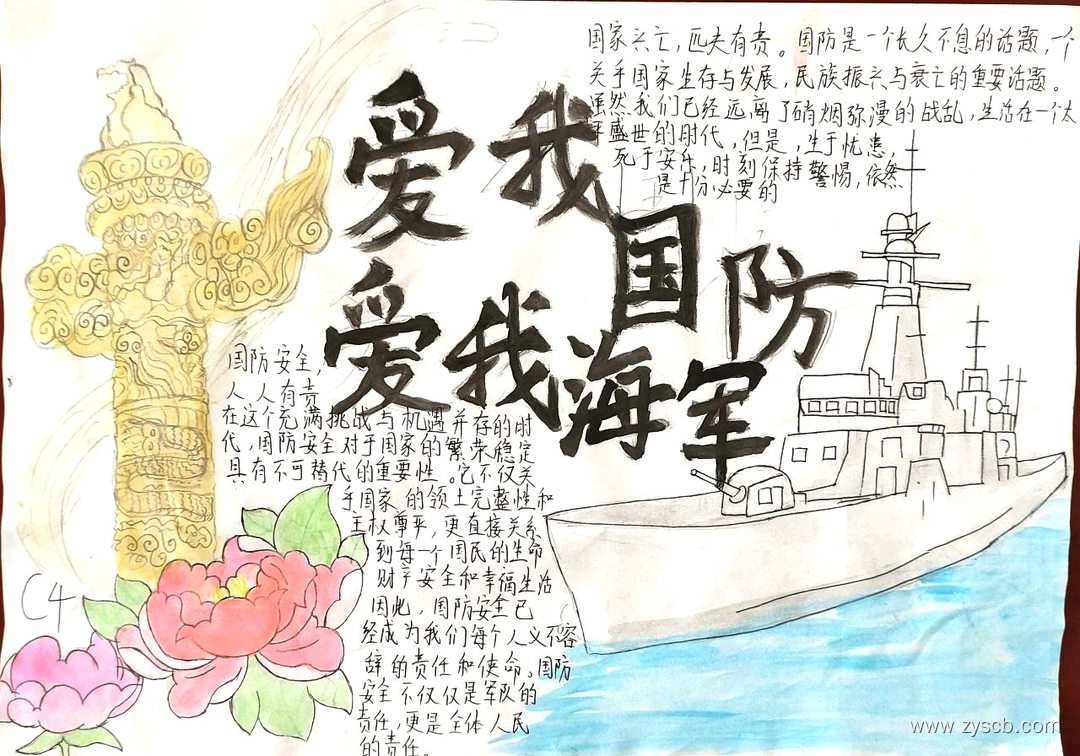 爱我国防
爱我海军
国家兴亡，匹夫有责。国防是一个长久不息的话题，一个
关乎国家生存与发展，民族振兴与衰亡的重要话题。
虽然我们已经远离了硝烟弥漫的战乱，生活在一个太
平盛世的时代，但是，生于忧患，
死于安乐，时刻保持警惕，依然
是十分必要的
国防安全，
人人有责
在这个充满挑战与机遇并存的时
代，国防安全对于国家的繁荣稳定
具有不可替代的重要性。它不仅关
乎国家的领土完整性和
主权尊严，更直接关系
到每一个国民的生命
财产安全和幸福生活
因此，国防安全已
经成为我们每个人义不容
辞的责任和使命。国防
安全不仅仅是军队的
责任，更是全体人民
的责任。
C4
www.zyscb.com